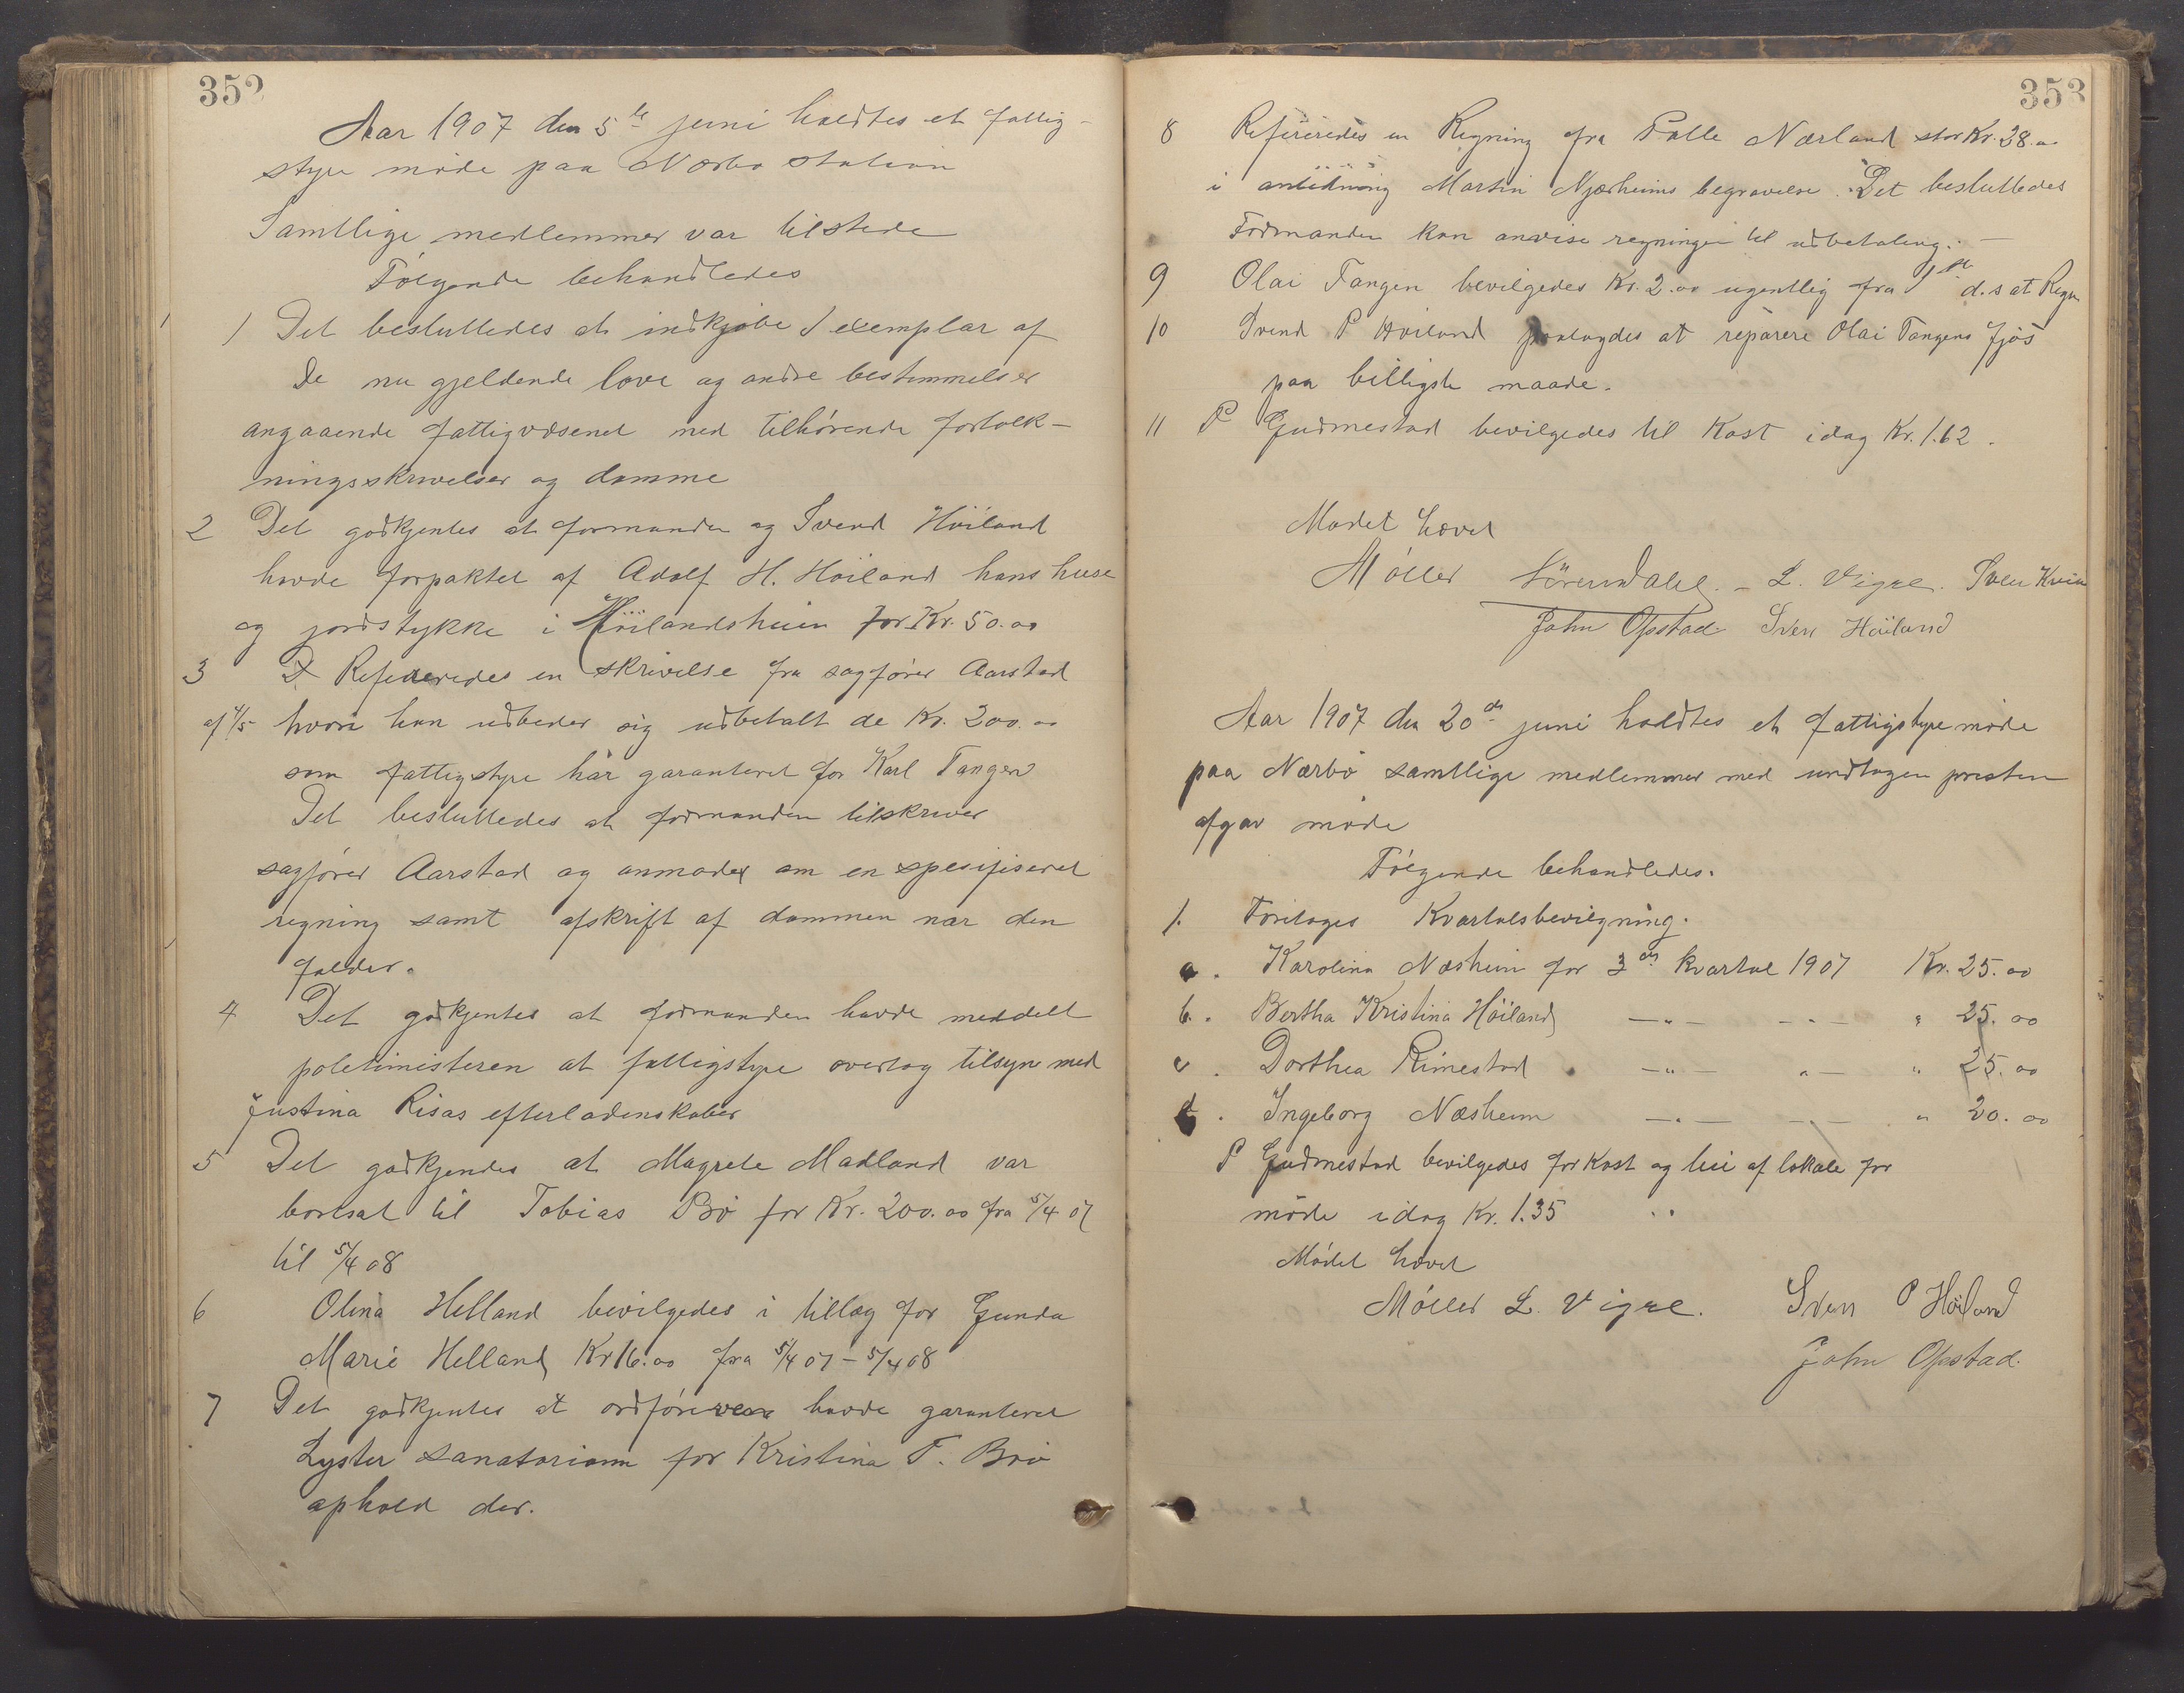 352
Aar 1907 den 5te juni holdtes et fattig-
styre møde paa Nærbø station
Samtlige medlemmer var tilstede
Følgende behandledes
1 Det besluttedes at indkjøbe 1 exemplar af
de nu gjeldende love og andre bestemmelser
angaaende fattigvæsenet med tilhørende fortolk-
ningsskrivelser og domme
2 Det godkjentes at formanden og Svend Høiland
havde forpaktet af Adolf H. Høiland hans huse
og jordstykke i Høilandsheien for Kr. 50.00
3 Refereredes en skrivelse fra sagfører Aarstad
af 4/5 hvori han udbeder sig udbetalt de Kr. 200.00
som fattigstyre har garanteret for Karl Tangen
Det besluttedes at formanden tilskriver
sagfører Aarstad og anmoder om en spesifiseret
regning samt afskrift af dommen nar den
falder.
4 Det godkjentes at formanden havde meddelt
politimesteren at fattigstyre overtog tilsyn med
Justina Risas efterladenskaber
5 Det godkjendes at Magrete Madland var
bortsat til Tobias Bø for Kr. 200.00 fra 5/4 07
til 5/4 08
6 Olena Helland bevilgedes i tillæg for Gunda
Marie Helland Kr 16.00 fra 5/4 07 - 5/4 08
7 Det godkjentes at ordføreren havde garanteret
Lyster sanatorium for Kristina T. Bøs
ophold der.
353
8 Refereredes en Regning fra Palle Nærland stor Kr. 38.00
i anledning Martin Njærheims begravelse. Det besluttedes
Formanden kan anvise regningen til udbetaling. -
9 Olai Tangen bevilgedes Kr. 2.00 ugentlig fra 1ste d.s at Regn
10 Svend P Høiland paalagdes at reparere Olai Tangens fjøs
paa billigste maade.
11 P Gudmestad bevilgedes til Kost idag Kr. 1.62.
Mødet hævet
Møller Sörensdahl. - L. Vigre. Sven Kvia
John Opstad Sven Höiland
Aar 1907 den 20de juni holdtes et fattigstyremøde
paa Nærbø samtlige medlemmer med undtagen presten
afgav møde
Følgende behandledes.
1. Foretoges Kvartalsbevilgning.
a. Karolina Næsheim for 3die kvartal 1907 Kr. 25.00
b. Bertha Kristina Höiland -"- -"- " 25.00
c. Dorthea Rimestad -"- "- " 25.00
d. Ingeborg Næsheim -"- -"- " 20.00
P Gudmestad bevilgedes for Kost og leie af lokale for
møde idag Kr. 1.35
Mødet hævet
Møller L. Vigre. Sven P Höiland
John Opstad.